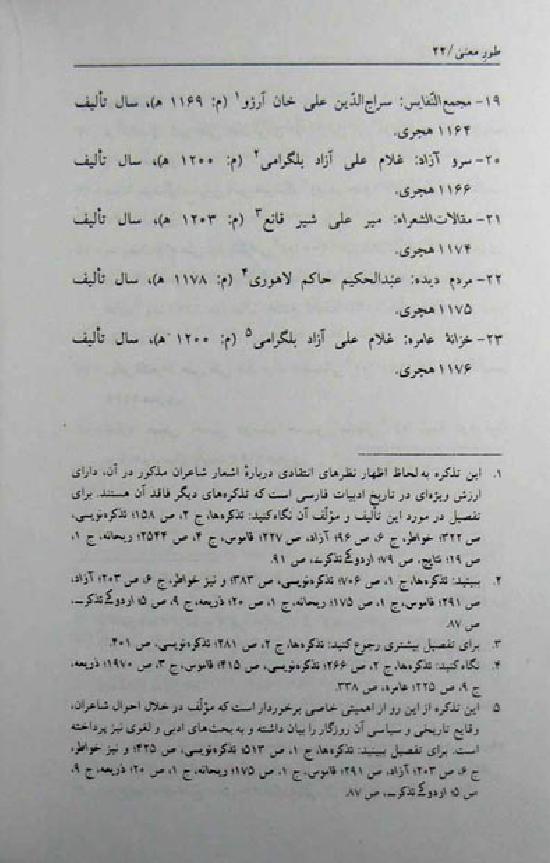 طور معنی / ۲۲
۱۹- مجمع‌النّفایس: سراج‌الدّین علی خان آرزو۱ (م: ۱۱۶۹ ه)، سال تألیف
۱۱۶۴ هجری.
۲۰- سرو آزاد: غلام علی آزاد بلگرامی۲ (م: ۱۲۰۰ ه)، سال تألیف
۱۱۶۶ هجری.
۲۱- مقالات‌الشعراء: میر علی شیر قانع۳ (م: ۱۲۰۳ ه)، سال تألیف
۱۱۷۴ هجری.
۲۲- مردم دیده: عبدالحکیم حاکم لاهوری۴ (م: ۱۱۷۸ ه)، سال تألیف
۱۱۷۵ هجری.
۲۳- خزانهٔ عامره: غلام علی آزاد بلگرامی۵ (م: ۱۲۰۰ ه)، سال تألیف
۱۱۷۶ هجری.
۱. این تذکره به‌لحاظ اظهار نظرهای انتقادی دربارهٔ اشعار شاعران مذکور در آن، دارای
ارزش ویژه‌ای در تاریخ ادبیات فارسی است که تذکره‌های دیگر فاقد آن هستند. برای
تفصیل در مورد این تألیف و مؤلّف آن نگاه کنید: تذکره‌ها، ج ۲، ص ۱۵۸؛ تذکره‌نویسی،
ص ۳۲۲؛ خواطر، ج ۶، ص ۹۶؛ آزاد، ص ۲۲۷؛ قاموس، ج ۴، ص ۲۵۴۴؛ ریحانه، ج ۱،
ص ۱۹؛ نتایج، ص ۷۹؛ اردو کے تذکرے، ص ۹۱.
۲. ببینید: تذکره‌ها، ج ۱، ص ۷۰۶؛ تذکره‌نویسی، ص ۳۸۳؛ و نیز خواطر، ج ۶، ص ۲۰۳؛ آزاد،
ص ۲۹۱؛ قاموس، ج ۱، ص ۱۷۵؛ ریحانه، ج ۱، ص ۲۰؛ ذریعه، ج ۹، ص ۵؛ اردو کے تذکرے،
ص ۸۷.
۳. برای تفصیل بیشتری رجوع کنید: تذکره‌ها، ج ۲، ص ۲۸۱؛ تذکره‌نویسی، ص ۴۰۱.
۴. نگاه کنید: تذکره‌ها، ج ۲، ص ۲۶۶؛ تذکره‌نویسی، ص ۴۱۵؛ قاموس، ج ۳، ص ۱۹۷۰؛ ذریعه،
ج ۹، ص ۲۲۵؛ عامره، ص ۳۳۸.
۵ این تذکره از این رو از اهمیتی خاصی برخوردار است که مؤلّف در خلال احوال شاعران،
وقایع تاریخی و سیاسی آن روزگار را بیان داشته و به بحث‌های ادبی و لغوی نیز پرداخته
است. برای تفصیل ببینید: تذکره‌ها، ج ۱، ص ۵۱۳؛ تذکره‌نویسی، ص ۴۲۵؛ و نیز خواطر،
ج ۶، ص ۲۰۳؛ آزاد، ص ۲۹۱؛ قاموس، ج ۱، ص ۱۷۵؛ ریحانه، ج ۱، ص ۲۰؛ ذریعه، ج ۹،
ص ۵؛ اردو کے تذکرے، ص ۸۷.